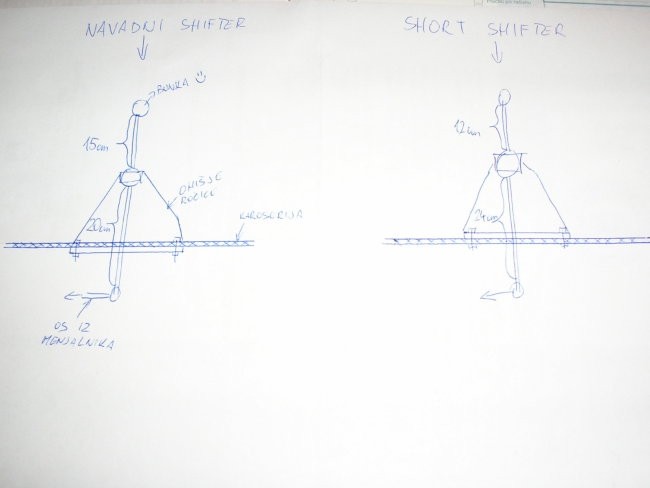 NAVADNI SHIFTER
BUNKA
15cm
OHIŠJE
ROČICE
20cm
KAROSERIJA
OS IZ
MENJALNIKA
SHORT SHIFTER
12cm
24cm